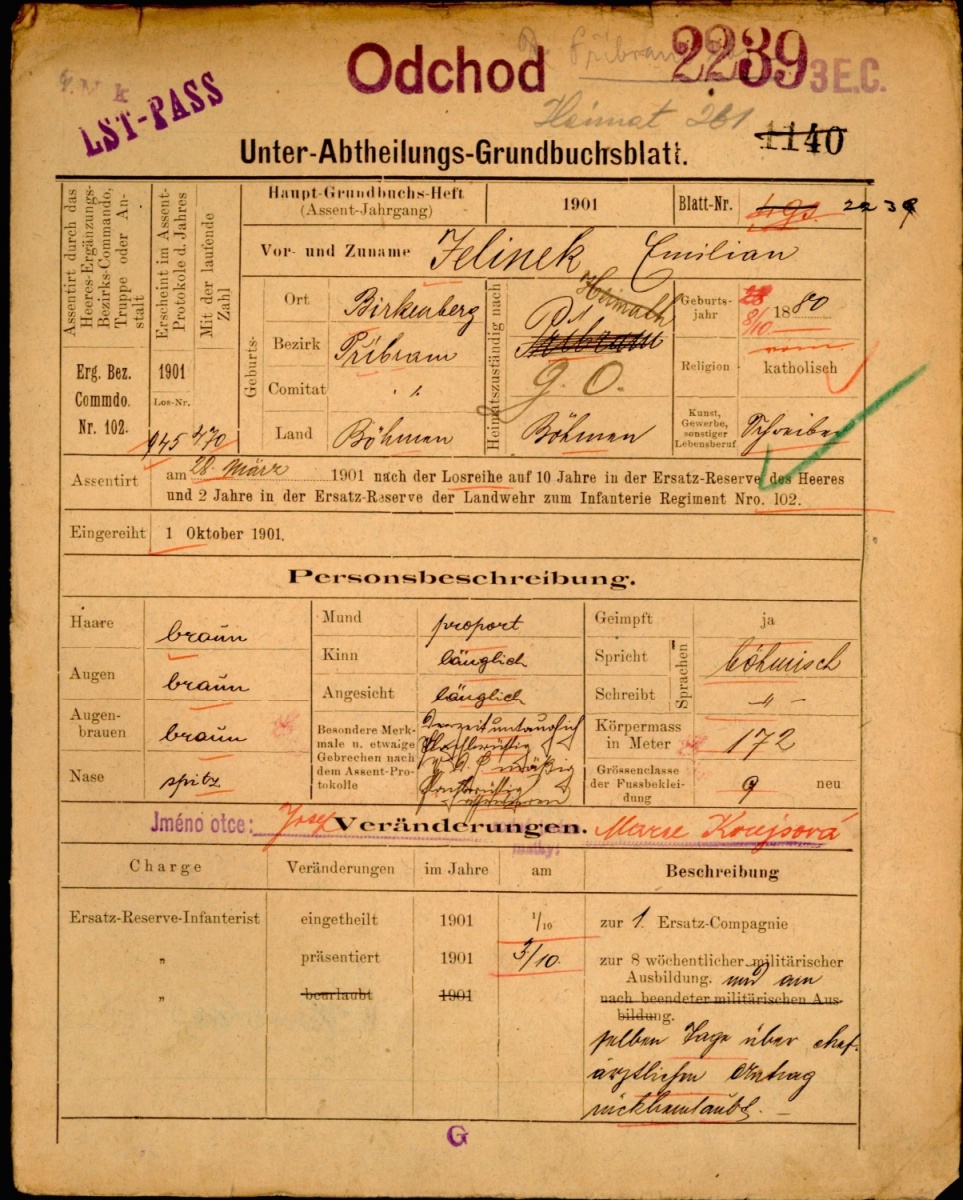 Odchod 2239 3E.C.
LST-PASS
Heimat 261
1140
Unter-Abtheilungs-Grundbuchsblatt.
Assentirt durch das Heeres-Ergänzungs-Bezirks-Commando, Truppe oder Anstalt
Erscheint im Assent-Protokole d. Jahres
Mit der laufende Zahl
Haupt-Grundbuchs-Heft
(Assent-Jahrgang)
1901
Blatt-Nr. 2239
Vor- und Zuname Jelinek Emilian
Erg. Bez.
Commdo.
Nr. 102.
1901
Los-Nr.
145
470
Geburts-
Ort Birkenberg
Bezirk Příbram
Comitat
Land Böhmen
Heimatszuständig nach
Heimath
Příbram
Böhmen
Geburts-
jahr
28
8/10
1880
Religion
katholisch
Kunst,
Gewerbe,
sonstiger
Lebensberuf
Schreiber
Assentirt am 28. März 1901 nach der Losreihe auf 10 Jahre in der Ersatz-Reserve des Heeres
und 2 Jahre in der Ersatz-Reserve der Landwehr zum Infanterie Regiment Nro. 102.
Eingereiht 1 Oktober 1901.
Personsbeschreibung.
Haare braun
Augen braun
Augen-
brauen braun
Nase spitz
Mund proport
Kinn länglich
Angesicht länglich
Besondere Merk-
male u. etwaige
Gebrechen nach
dem Assent-Pro-
tokolle
Derzeit untauglich
Geimpft ja
Spricht böhmisch
Schreibt „
Sprachen
Körpermass
in Meter 172
Grössenclasse
der Fussbeklei-
dung 9 neu
Jméno otce: Josef
Veränderungen.
matky: Marie
Charge
Veränderungen
im Jahre
am
Beschreibung
Ersatz-Reserve-Infanterist eingetheilt 1901 1/10 zur 1. Ersatz-Compagnie
„ präsentiert 1901 3/10. zur 8 wöchentlicher militärischer
Ausbildung. und am
„ beurlaubt 1901 nach beendeter militärischen Aus-
bildung.
selben Tage über chef-
ärztlichen Antrag
rückbeurlaubt. —
G